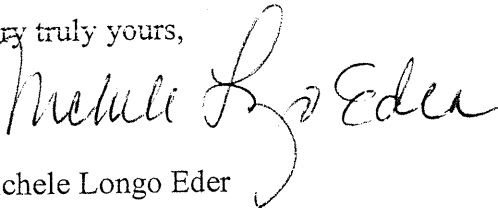 ry truly yours,
Michele Longo Eder
chele Longo Eder